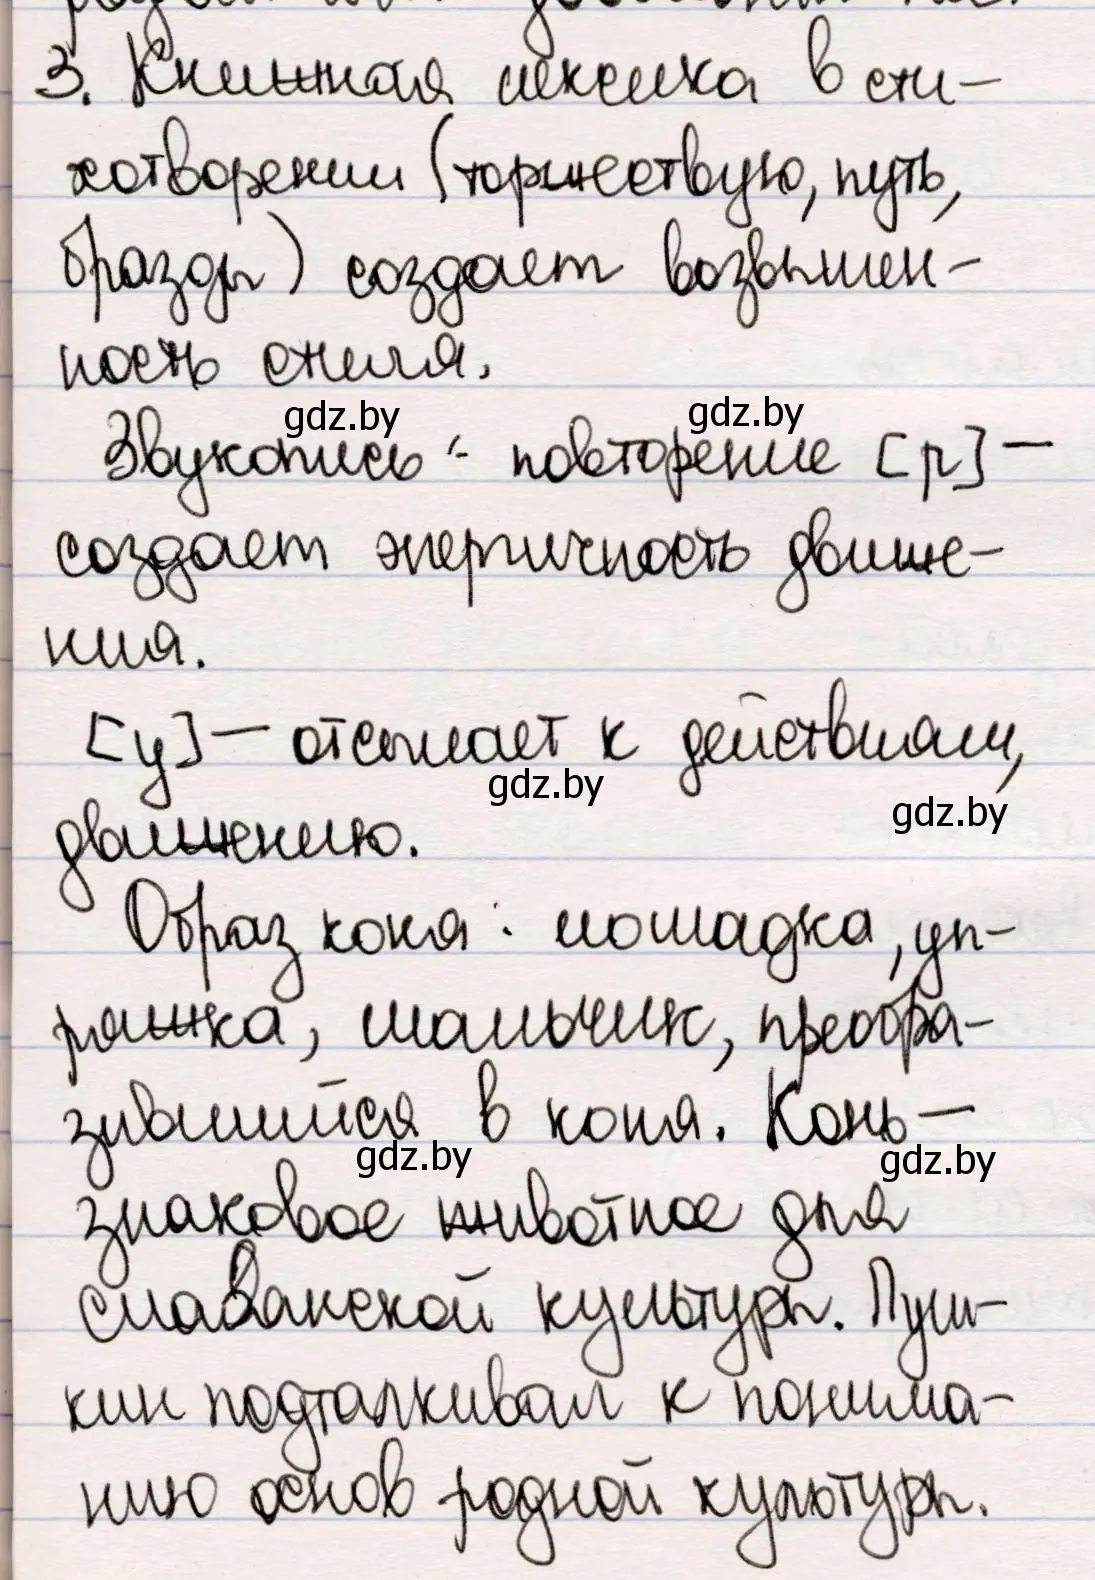 3. Книжная лексика в сти-
хотворении (торжествую, путь,
бразды) создает возвышен-
ность стиля.
gdz.by
gdz.by
Звукопись: повторение [р] -
создает энергичность движе-
ния.
[у] - отсылает к действиям,
gdz.by
gdz.by
движению.
Образ коня: лошадка, уп-
ряжка, мальчик, преобра-
зившийся в коня. Конь -
gdz.by
gdz.by
знаковое животное для
славянской культуры. Пуш-
кин подталкивал к понима-
нию основ родной культуры.